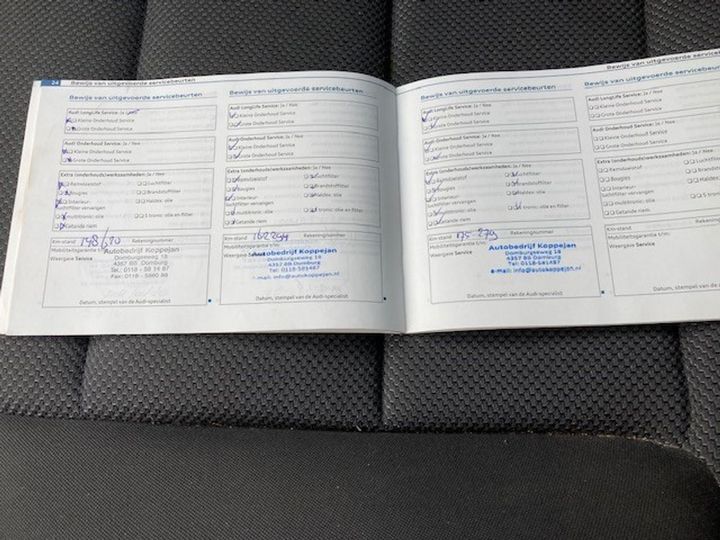 24 Bewijs van uitgevoerde servicebeurten
Bewijs van uitgevoerde servicebeurten
Audi LongLife Service: Ja / Nee
Kleine Onderhoud Service
Grote Onderhoud Service
Audi Onderhoud Service: Ja / Nee
Kleine Onderhoud Service
Grote Onderhoud Service
Extra (onderhouds)werkzaamheden: Ja / Nee
Remvloeistof Luchtfilter
Bougies Brandstoffilter
Interieur- Haldex: olie
luchtfilter vervangen
multitronic: olie S tronic: olie en filter
Getande riem
Km-stand 148/610 Rekeningnummer
Mobiliteitsgarantie t/m:
Weergave Service
Autobedrijf Koppejan
Domburgseweg 18
4357 BB Domburg
Tel.: 0118 - 58 14 87
Fax: 0118 - 5860 98
Datum, stempel van de Audi-specialist
Bewijs van uitgevoerde servicebeurten
Audi LongLife Service: Ja / Nee
Kleine Onderhoud Service
Grote Onderhoud Service
Audi Onderhoud Service: Ja / Nee
Kleine Onderhoud Service
Grote Onderhoud Service
Extra (onderhouds)werkzaamheden: Ja / Nee
Remvloeistof Luchtfilter
Bougies Brandstoffilter
Interieur- Haldex: olie
luchtfilter vervangen
multitronic: olie S tronic: olie en filter
Getande riem
Km-stand Rekeningnummer
Mobiliteitsgarantie t/m:
Weergave Service
Autobedrijf Koppejan
Domburgseweg 18
4357 BB Domburg
Tel: 0118-581487
e-mail: info@autokoppejan.nl
Datum, stempel van de Audi-specialist
Bewijs van uitgevoerde servicebeurten
Audi LongLife Service: Ja / Nee
Kleine Onderhoud Service
Grote Onderhoud Service
Audi Onderhoud Service: Ja / Nee
Kleine Onderhoud Service
Grote Onderhoud Service
Extra (onderhouds)werkzaamheden: Ja / Nee
Remvloeistof Luchtfilter
Bougies Brandstoffilter
Interieur- Haldex: olie
luchtfilter vervangen
multitronic: olie S tronic: olie en filter
Getande riem
Km-stand 175-279 Rekeningnummer
Mobiliteitsgarantie t/m:
Weergave Service
Autobedrijf Koppejan
Domburgseweg 18
4357 BB Domburg
Tel: 0118-581487
e-mail: info@autokoppejan.nl
Datum, stempel van de Audi-specialist
Bewijs van uitgevoerde se
Bewijs van uitgevoerde servicebeurten
Audi LongLife Service: Ja / Nee
Kleine Onderhoud Service
Grote Onderhoud Service
Audi Onderhoud Service: Ja / Nee
Kleine Onderhoud Service
Grote Onderhoud Service
Extra (onderhouds)werkzaamheden: Ja
Remvloeistof
Bougies
Interieur-
luchtfilter vervangen
multitronic: olie S tro
Getande riem
Km-stand Rek
Mobiliteitsgarantie t/m:
Weergave Service
Datum, stempel van de A